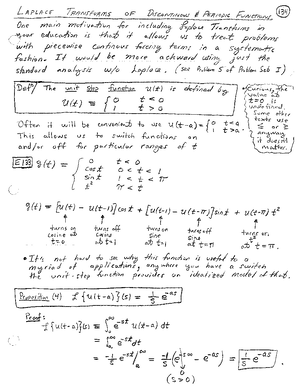 LAPLACE TRANSFORMS OF DISCONTINUOUS & PERIODIC FUNCTIONS. (134)
One main motivation for including Laplace Transforms in
your education is that it allows us to treat problems
with piecewise continuous forcing terms in a systematic
fashion. It would be more awkward using just the
standard analysis w/o Laplace, (see Problem 5 of Problem Set I)
Defⁿ/ The unit step function u(t) is defined by
u(t) = { 0 t < 0
1 t > 0
Curiously, the
value at
t=0 is
undefined.
Some other
texts use
≤ or ≥
anyway
it doesn't
matter.
Often it will be convenient to use u(t-a) = { 0 t<a
1 t>a
This allows us to switch functions on
and/or off for particular ranges of t
E133 g(t) = { 0 t < 0
cos t 0 < t < 1
sin t 1 < t < π
t² π < t
g(t) = [u(t) - u(t-1)] cos t + [u(t-1) - u(t-π)] sin t + u(t-π) t²
turns on
cosine at
t=0
turns off
cosine
at t=1
turns on
sine
at t=1
turns off
sine
at t=π
turns on
t²
at t=π.
• It's not hard to see why this function is useful to a
myriad of applications, anywhere you have a switch
the unit-step function provides an idealized model of that.
Proposition (4) ℒ{u(t-a)}(s) = 1/s e^{-as}
Proof:
ℒ{u(t-a)}(s) = ∫₀^∞ e^{-st} u(t-a) dt
= ∫ₐ^∞ e^{-st} dt
= -1/s e^{-st}|ₐ^∞ = -1/s (e^{-s∞} - e^{-as}) = 1/s e^{-as}
(s>0)